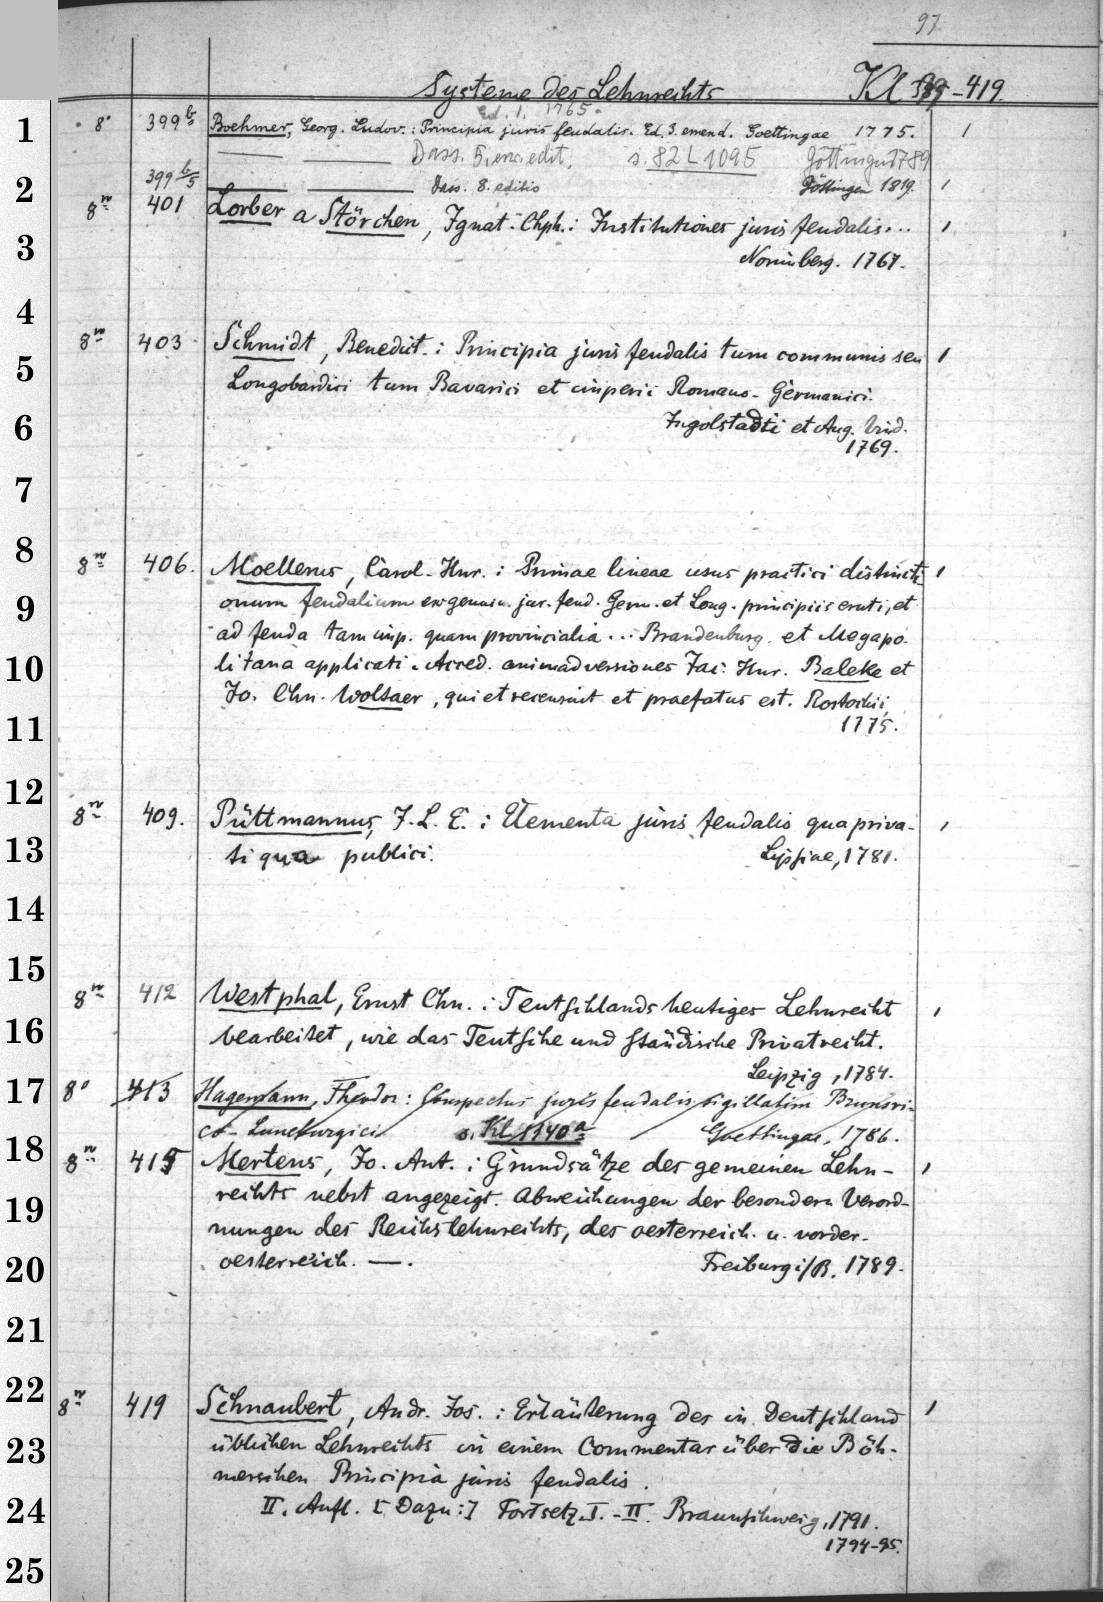 97.
Systeme des Lehnrechts Kl 399-419.
Ed. 1. 1765.
1 8° 399 b Boehmer, Georg. Ludov.: Principia juris feudalis. Ed. 3. emend. Goettingae 1775. 1
Dass. 5. em. edit. s. 82 L 1095 Göttingen 1789
2 399 b/5 Dass. 8. editio Göttingen 1819. 1
8° 401 Lorber a Störchen, Ignat. Chph.: Institutiones juris feudalis... 1
3 Norimberg. 1767.
4
8° 403 Schmidt, Benedict.: Principia juris feudalis tum communis seu 1
5 Longobardici tum Bavarici et imperii Romano-Germanici.
6 Ingolstadii et Aug. Vind.
1769.
7
8
8° 406. Moellerus, Carol. Hnr.: Primae lineae usus practici distincti- 1
9 onum feudalium ex genuin. jur. feud. Germ. et Long. principiis eruti, et
ad feuda tam imp. quam provincialia... Brandenburg. et Megapo-
10 litana applicati. Acced. animadversiones Jac. Hnr. Baleke et
Jo. Chn. Woltaer, qui et recensuit et praefatus est. Rostochii,
11 1775.
12
8° 409. Püttmannus, J. L. E.: Elementa juris feudalis qua priva- 1
13 ti qua publici. Lipsiae, 1781.
14
15
8° 412 Westphal, Ernst Chn.: Teutschlands heutiges Lehnrecht 1
16 bearbeitet, wie das Teutsche und Ständische Privatrecht.
Leipzig, 1784.
17 8° 413 Hagemann, Theodor: Conspectus juris feudalis sigillatim Brunsvi-
co-Luneburgici s. Kl 1140 a Goettingae, 1786.
18 8° 415 Mertens, Jo. Ant.: Grundsätze des gemeinen Lehn- 1
19 rechts nebst angezeigt. Abweichungen der besondern Verord-
nungen des Reichslehnrechts, des oesterreich. u. vorder-
20 oesterreich. —. Freiburg i/B. 1789.
21
22
8° 419 Schnaubert, Andr. Jos.: Erläuterung des in Deutschland 1
23 üblichen Lehnrechts in einem Commentar über die Böh-
merschen Principia juris feudalis.
24 II. Aufl. [Dazu:] Fortsetz. I.-II. Braunschweig, 1791.
1794-95.
25